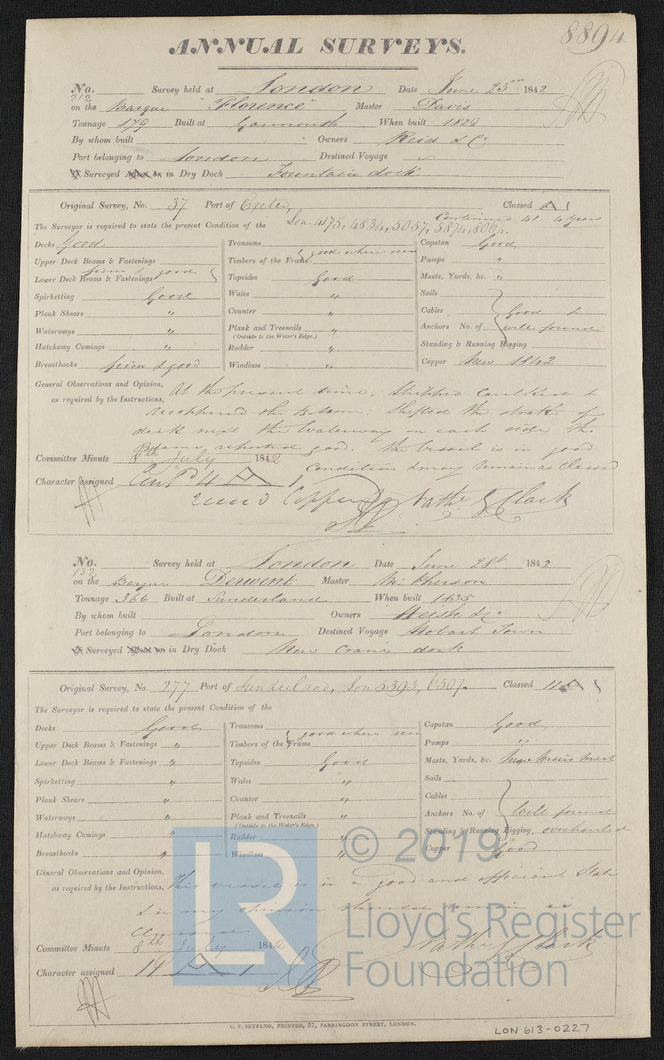 8894
ANNUAL SURVEYS.
No. 212 Survey held at London Date June 23rd 1842
on the Barque "Florence" Master Davis
Tonnage 179 Built at Yarmouth When built 1829
By whom built Owners Reid & Co.
Port belonging to London Destined Voyage
Surveyed in Dry Dock Fountain dock
Original Survey, No. 37 Port of Classed A 1
Continued 4 years
Lon 4175, 4834, 5057, 5874, 8004.
The Surveyor is required to state the present Condition of the
Decks Good Transoms Capstan Good
Upper Deck Beams & Fastenings Timbers of the Frame good where seen Pumps "
Lower Deck Beams & Fastenings firm & good Topsides Good Masts, Yards, &c. "
Spirketting Good Wales " Sails
Plank Shears " Counter " Cables Good &
Waterways " Plank and Treenails " Anchors No. of well found
(Outside to the Water's Edge.)
Hatchway Comings " Rudder " Standing & Running Rigging
Breasthooks firm & good Windlass " Copper New 1842
General Observations and Opinion, At the present time, stripped caulked &
as required by the Instructions, recoppered the Bottom: Shifted the strake of
deck next the Waterway on each side the
Beams reported good. the vessel is in good
Condition & may remain as classed
Committee Minute 8th July 1842
Character assigned 4 A 1
Nathl Clark
No. 132 Survey held at London Date June 28th 1842
on the Barque Derwent Master McPherson
Tonnage 366 Built at Sunderland When built 1835
By whom built Owners &c
Port belonging to London Destined Voyage Hobart Town
Surveyed in Dry Dock New Crane dock
Original Survey, No. 277 Port of Sunderland, Lon 5393, 6507. Classed A 1
The Surveyor is required to state the present Condition of the
Decks Good Transoms Capstan Good
Upper Deck Beams & Fastenings " Timbers of the Frame good where seen Pumps "
Lower Deck Beams & Fastenings " Topsides Good Masts, Yards, &c. New Mast
Spirketting " Wales " Sails
Plank Shears " Counter " Cables
Waterways " Plank and Treenails " Anchors No. of Well found
(Outside to the Water's Edge.)
Hatchway Comings " Rudder " Standing & Running Rigging overhauled
Breasthooks " Windlass " Copper Good
General Observations and Opinion, This vessel is in a good and efficient State
as required by the Instructions, & in my opinion as
Committee Minute 8th July 1842
Nathl Clark
Character assigned 14 A 1
C. F. SEYFANG, PRINTER, 57, FARRINGDON STREET, LONDON.
LON 613-0227
LR
© 2019
Lloyd's Register
Foundation